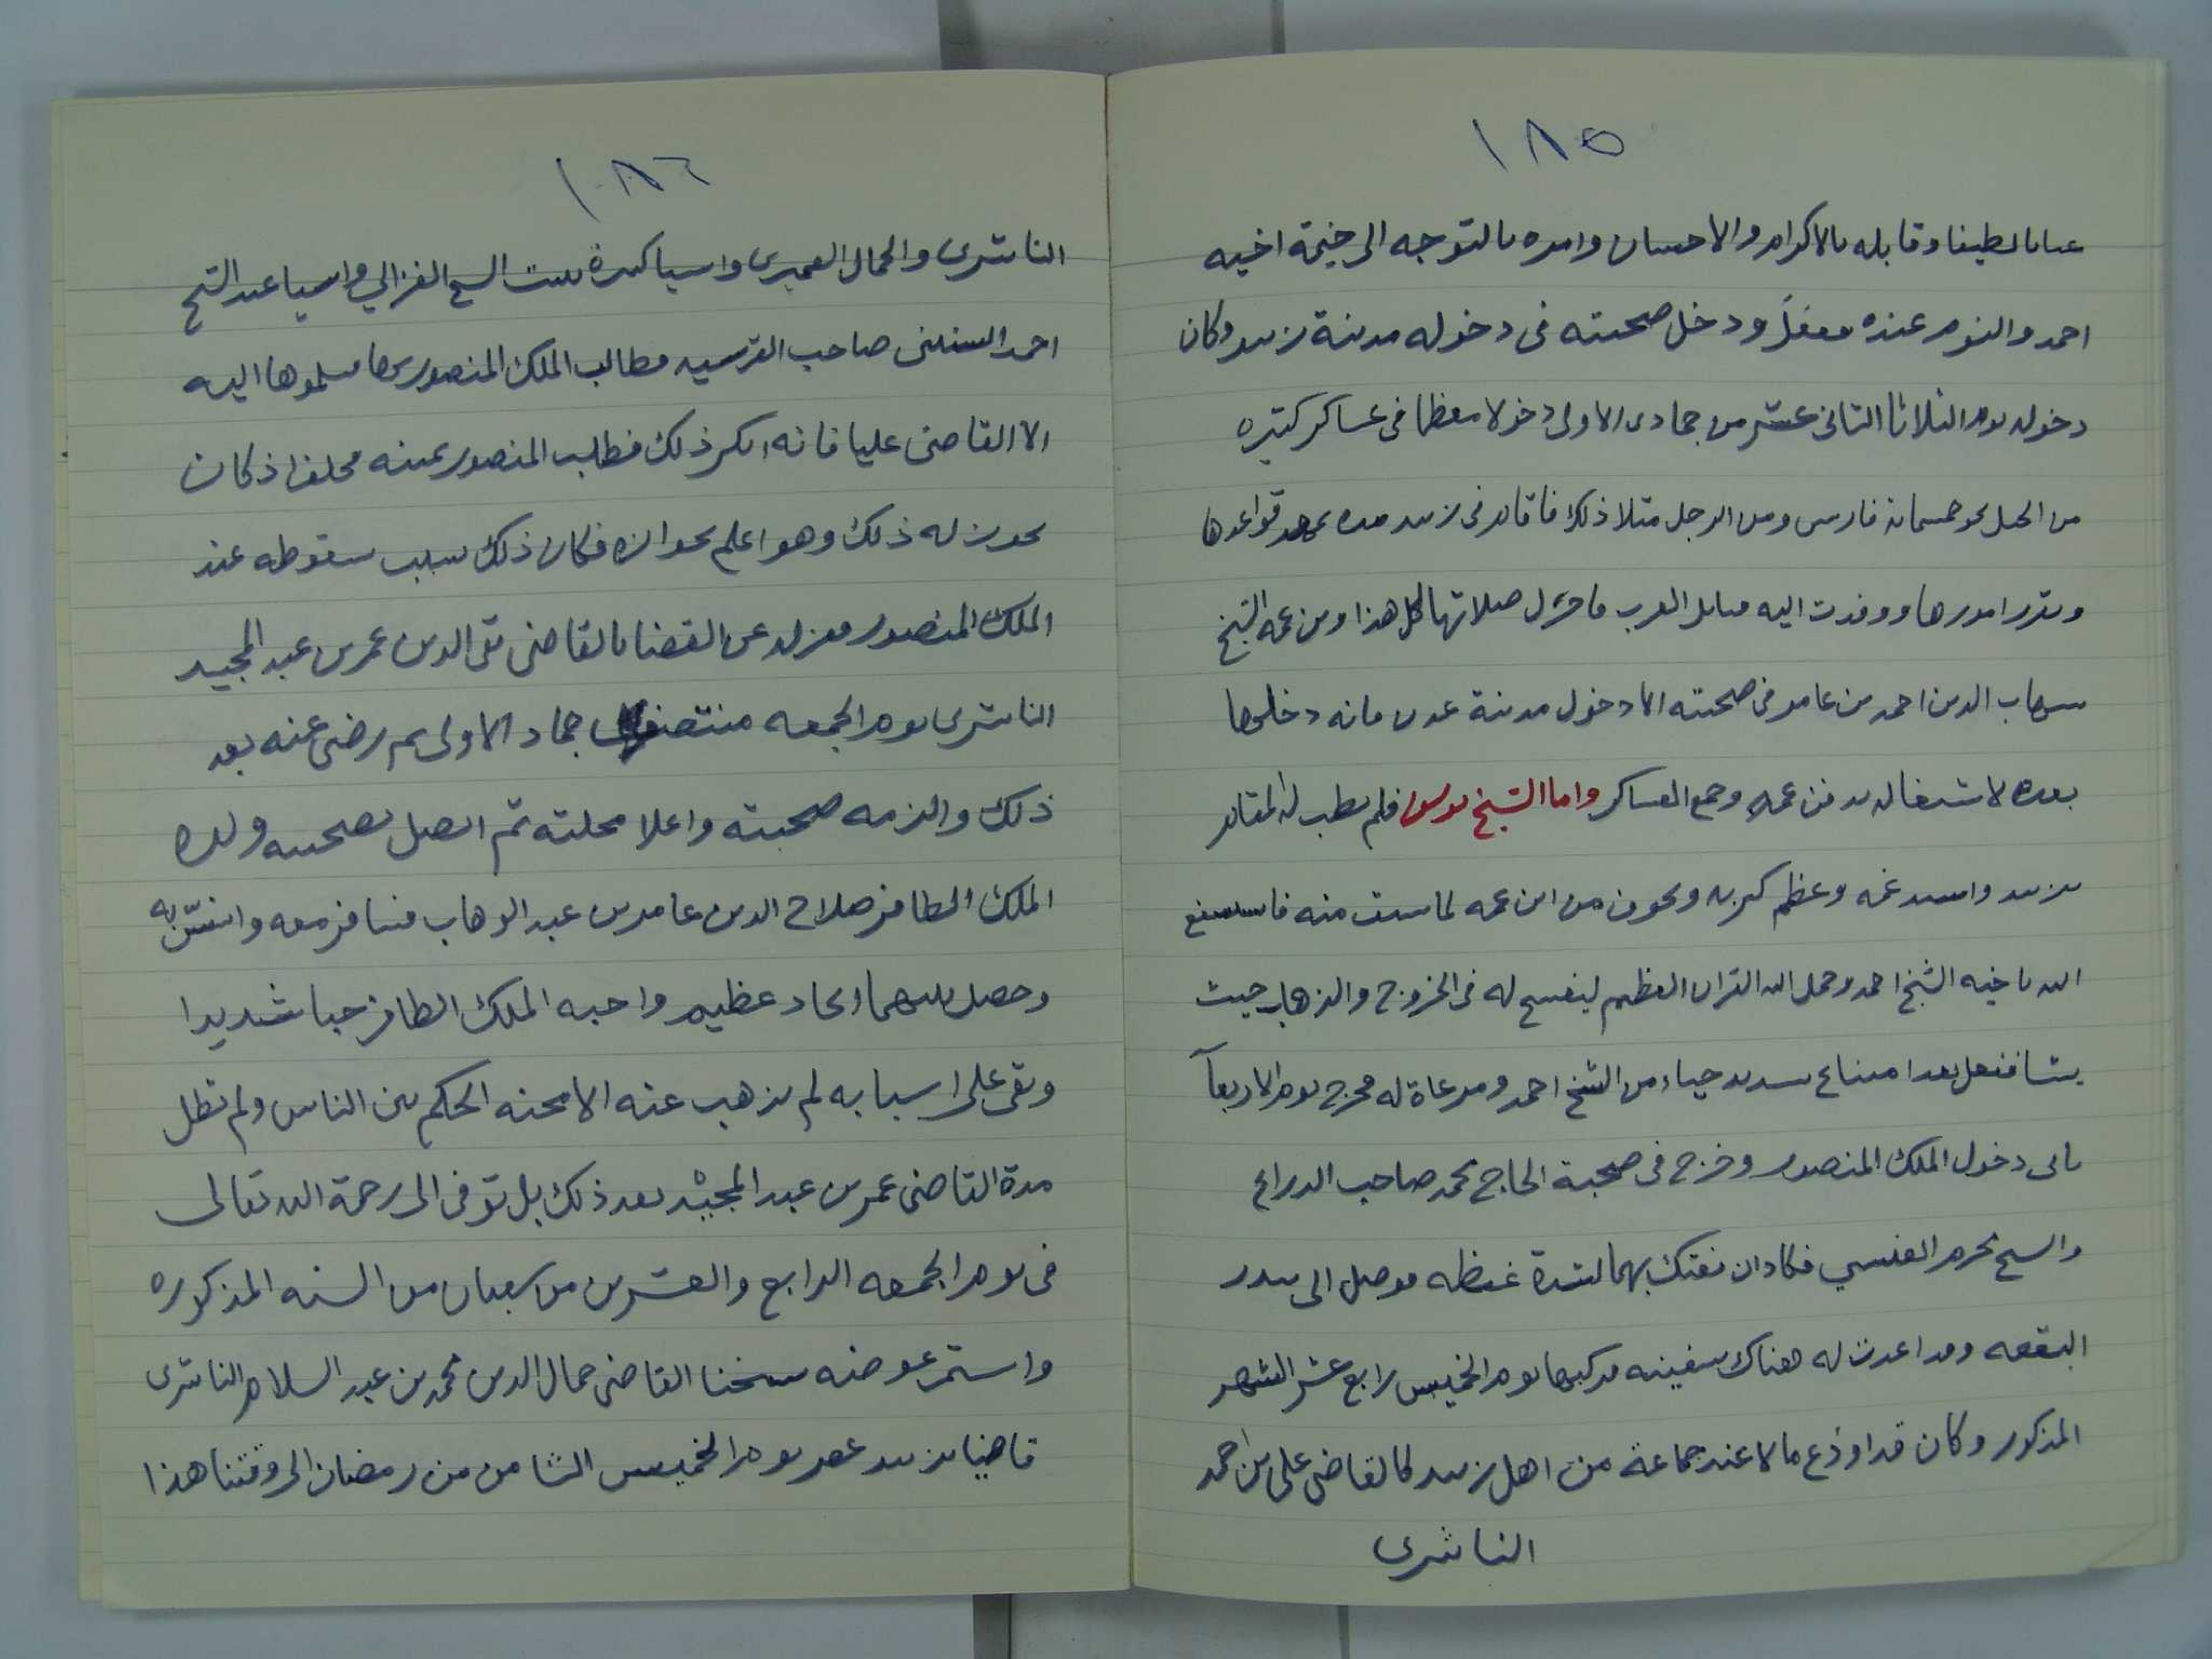 ١٨٥
عتابا لطيفا وقابله بالاكرام والاحسان وامره بالتوجه الى خيمة اخيه
احمد والنوم عنده ففعل ودخل صحبته فى دخوله مدينة زبيد وكان
دخوله يوم الثلاثا الثانى عشر من جمادى الاولى دخولا معظما فى عساكر كثيره
من الخيل نحو خمسمائة فارس ومن الرجل مثلا ذلك فاقام فى زبيد مده يمهد قواعدها
ويقرر امورها ووفدت اليه قبائل العرب فاجزل صلاتها كل هذا وبن عمه الشيخ
شهاب الدين احمد بن عامر فى صحبته الا دخول مدينة عدن فانه دخلها
بعده لاشتغاله بدفن عمه وجمع العساكر واما الشيخ يوسف فلم يطب له المقام
بزبيد واشتد غمه وعظم كربه وتخوف من ابن عمه لما سبق منه فاستشفع
اليه باخيه الشيخ احمد وحمل اليه القران العظيم ليفسح له فى الخروج والذهاب حيث
يشا ففعل بعد امتناع شديد حياء من الشيخ احمد ومرعاة له فخرج يوم الاربعآ
ثانى دخول الملك المنصور وخرج فى صحبة الحاج محمد صاحب
والشيخ محرم العنسي فكاد ان يفتك بهما لشدة غيظه فوصل الى بندر
البقعه وقد اعدت له هناك سفينه فركبها يوم الخميس رابع عشر الشهر
المذكور وكان قد اودع مالا عند جماعة من اهل زبيد كالقاضى على بن احمد
الناشرى
١٨٦
الناشرى والجمال العميرى واشيا كثيرة ببيت الشيخ الغزالي واشيا عند الشيخ
احمد صاحب القرشيه فطالب الملك المنصور بها فسلموها اليه
الا القاضى عليا فانه انكر ذلك فطلب المنصور يمينه فحلف اذ كان
يجوز له ذلك وهو اعلم بجوازه فكان ذلك سبب سقوطه عند
الملك المنصور فعزله عن القضا بالقاضى تقى الدين عمر بن عبد المجيد
الناشرى يوم الجمعه منتصف جماد الاولى ثم رضى عنه بعد
ذلك والزمه صحبته واعلا محلته ثم اتصل بصحبته ولده
الملك الظافر صلاح الدين عامر بن عبد الوهاب فسافر معه وانس به
وحصل بينهما اتحاد عظيم واحبه الملك الظافر حبا شديدا
وبقى على اسبابه لم يذهب عنه الا محنه الحكم بين الناس ولم تطل
مدة القاضى عمر بن عبد المجيد بعد ذلك بل توفى الى رحمة الله تعالى
فى يوم الجمعه الرابع والعشرين من شعبان من السنه المذكوره
واستمر عوضه شيخنا القاضى جمال الدين محمد بن عبد السلام الناشرى
قاضيا بزبيد عصر يوم الخميس الثامن من رمضان الى وقتنا هذا